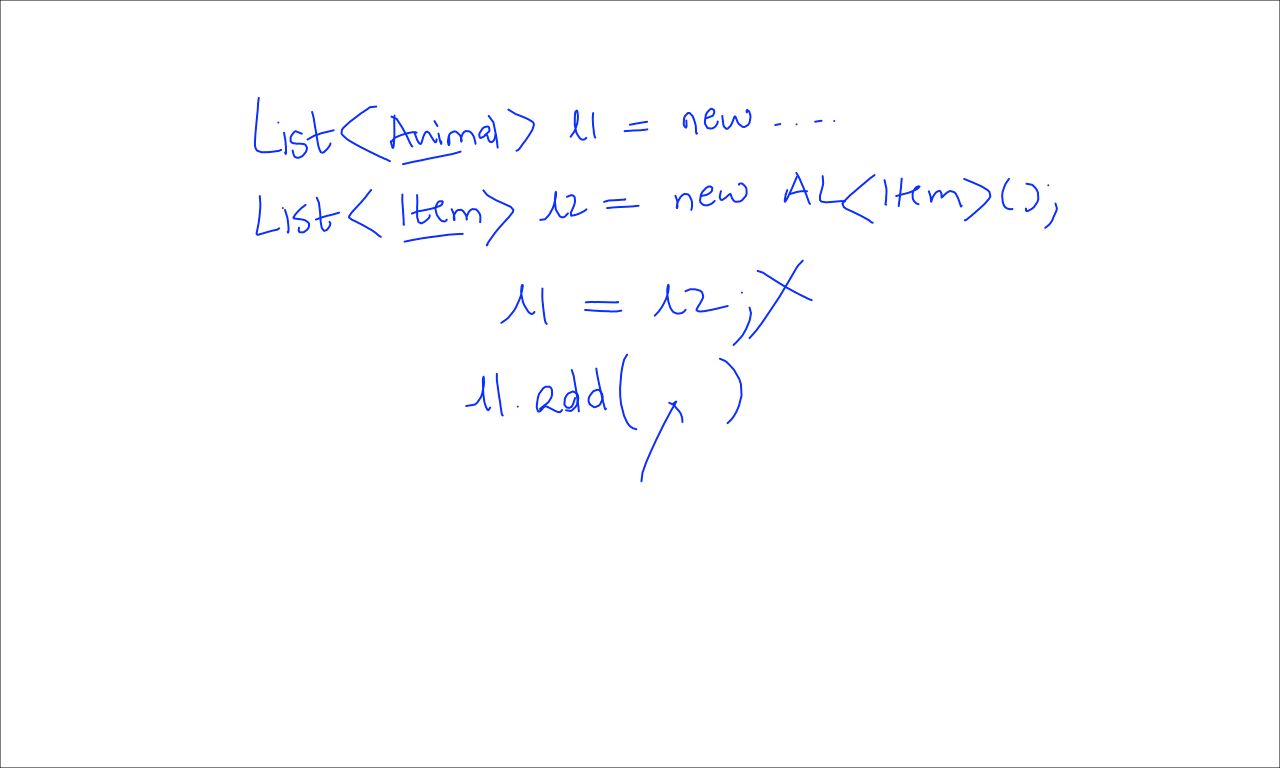 List<Animal> l1 = new ....
List<Item> l2 = new AL<Item>();
l1 = l2;
l1.add( )